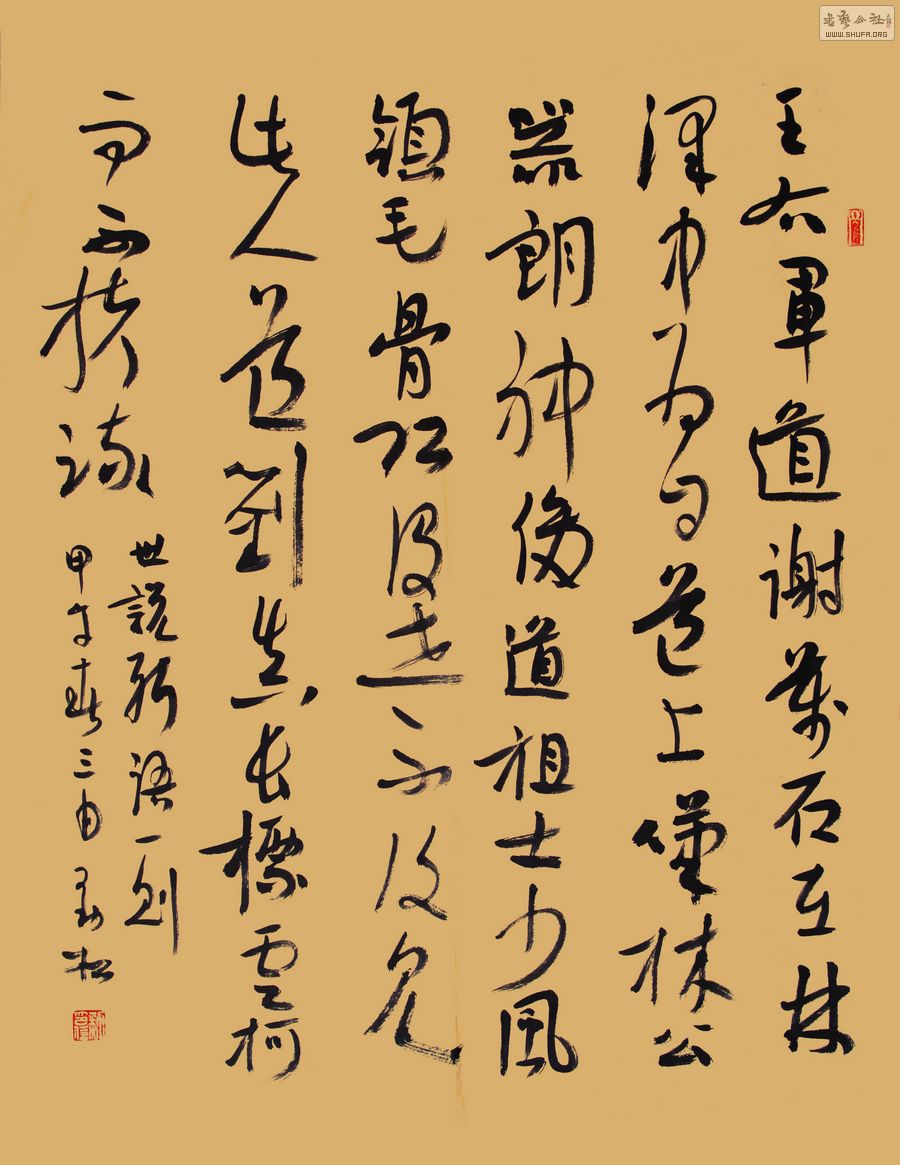 書藝公社
WWW.SHUFA.ORG
王右軍道謝萬石在林
澤中為自遒上嘆林公
器朗神俊道祖士少風
領毛骨恐没世不復見
此人道劉真長標雲柯
而不扶疎
世説新語一則
甲午春三